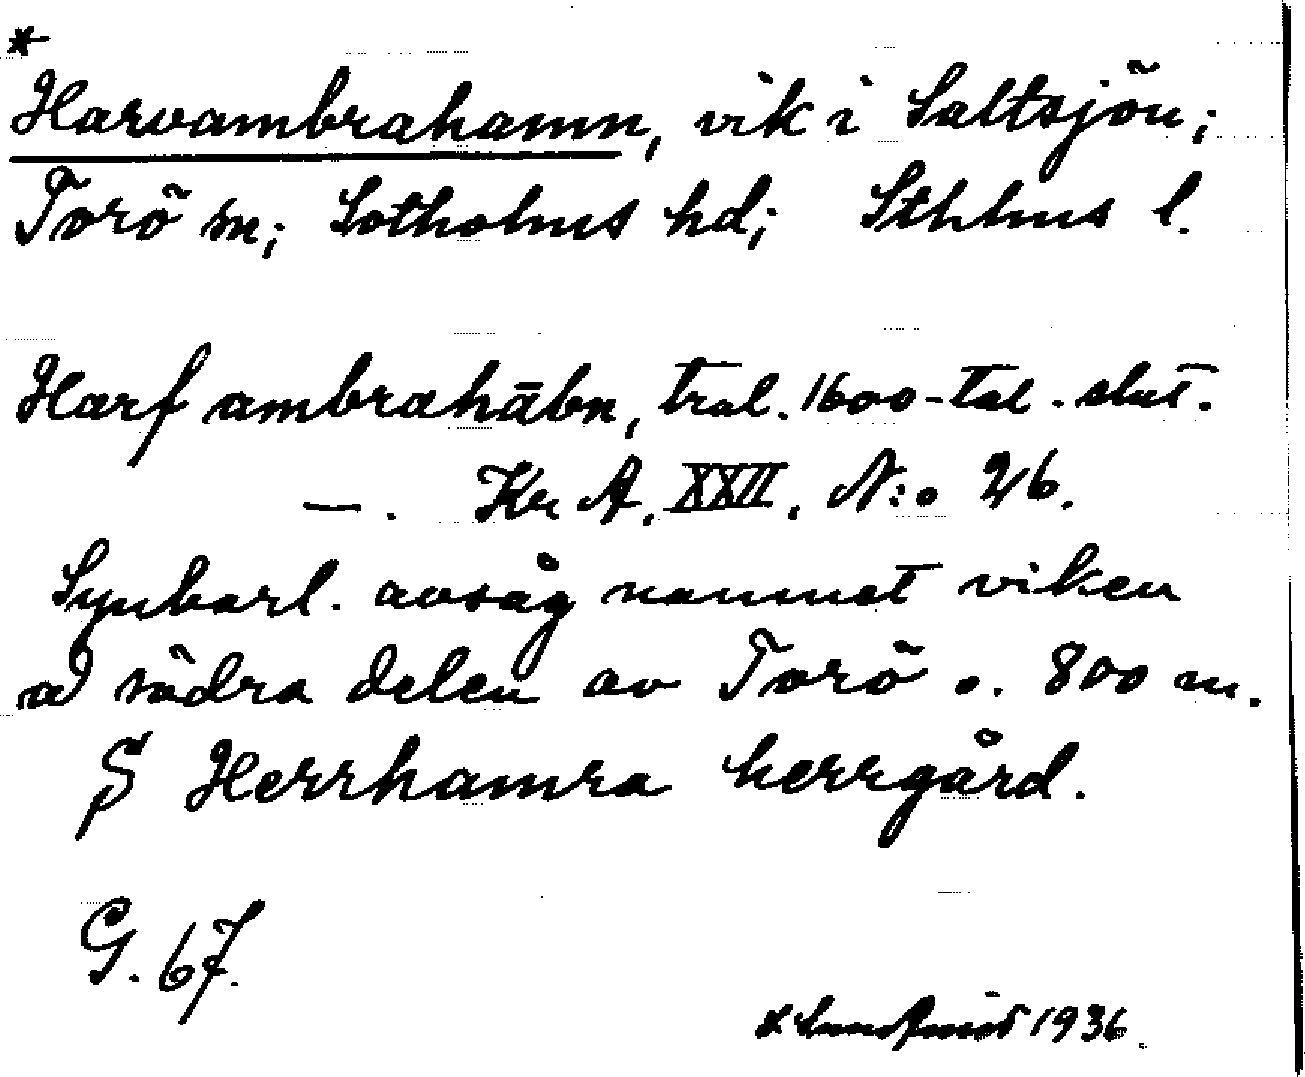 *
Harvambrahamn, vik i Saltsjön;
Torö sn; Sotholms hd; Sthlms l.
Harf ambrahābn, tral. 1600-tal. slut.
—. Kr A, XXII, N:o 26.
Synbarl. avsåg namnet viken
å södra delen av Torö o. 800 m.
S Herrhamra herrgård.
G. 67.
1936.